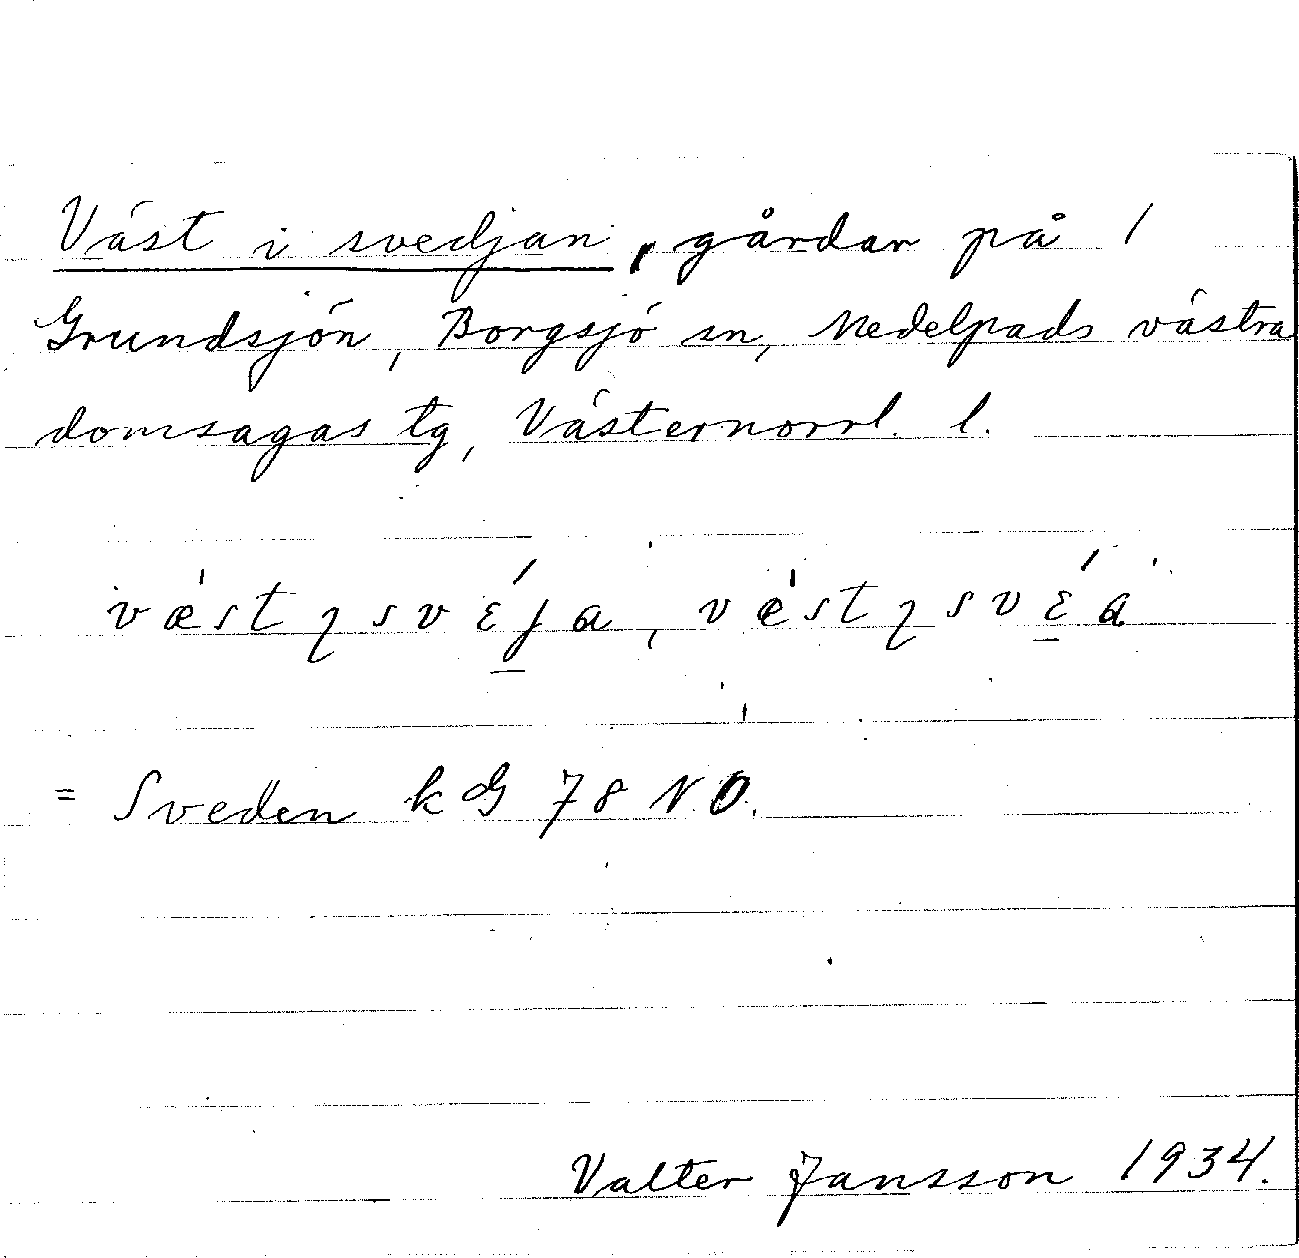 Väst i svedjan, gårdar på 1
Grundsjön, Borgsjö sn, Medelpads västra
domsagas tg, Västernorrl. l.
væ̍stɿsvɛ́ja, ve̍stɿsvɛ́a
= Sveden k G 78 NO.
Valter Jansson 1934.